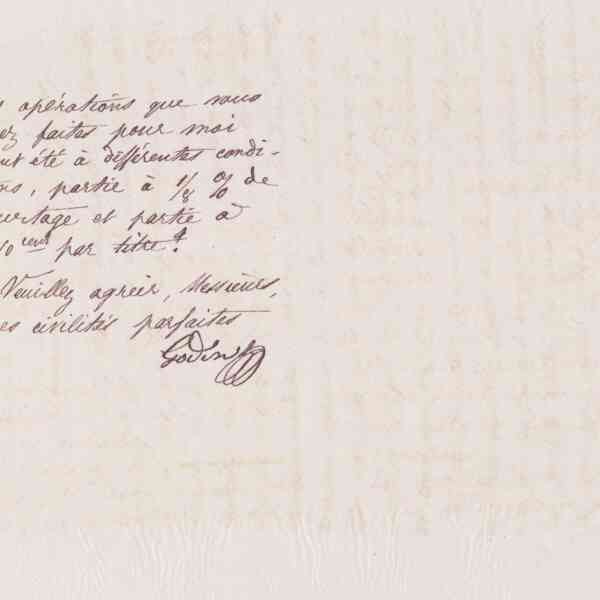 s opérations que vous
ez faites pour moi
nt été à différentes condi-
ns, partie à 1/8 % de
urtage et partie à
10 cent par titre.
Veuillez agréer, Messieurs,
es civilités parfaites
Godin